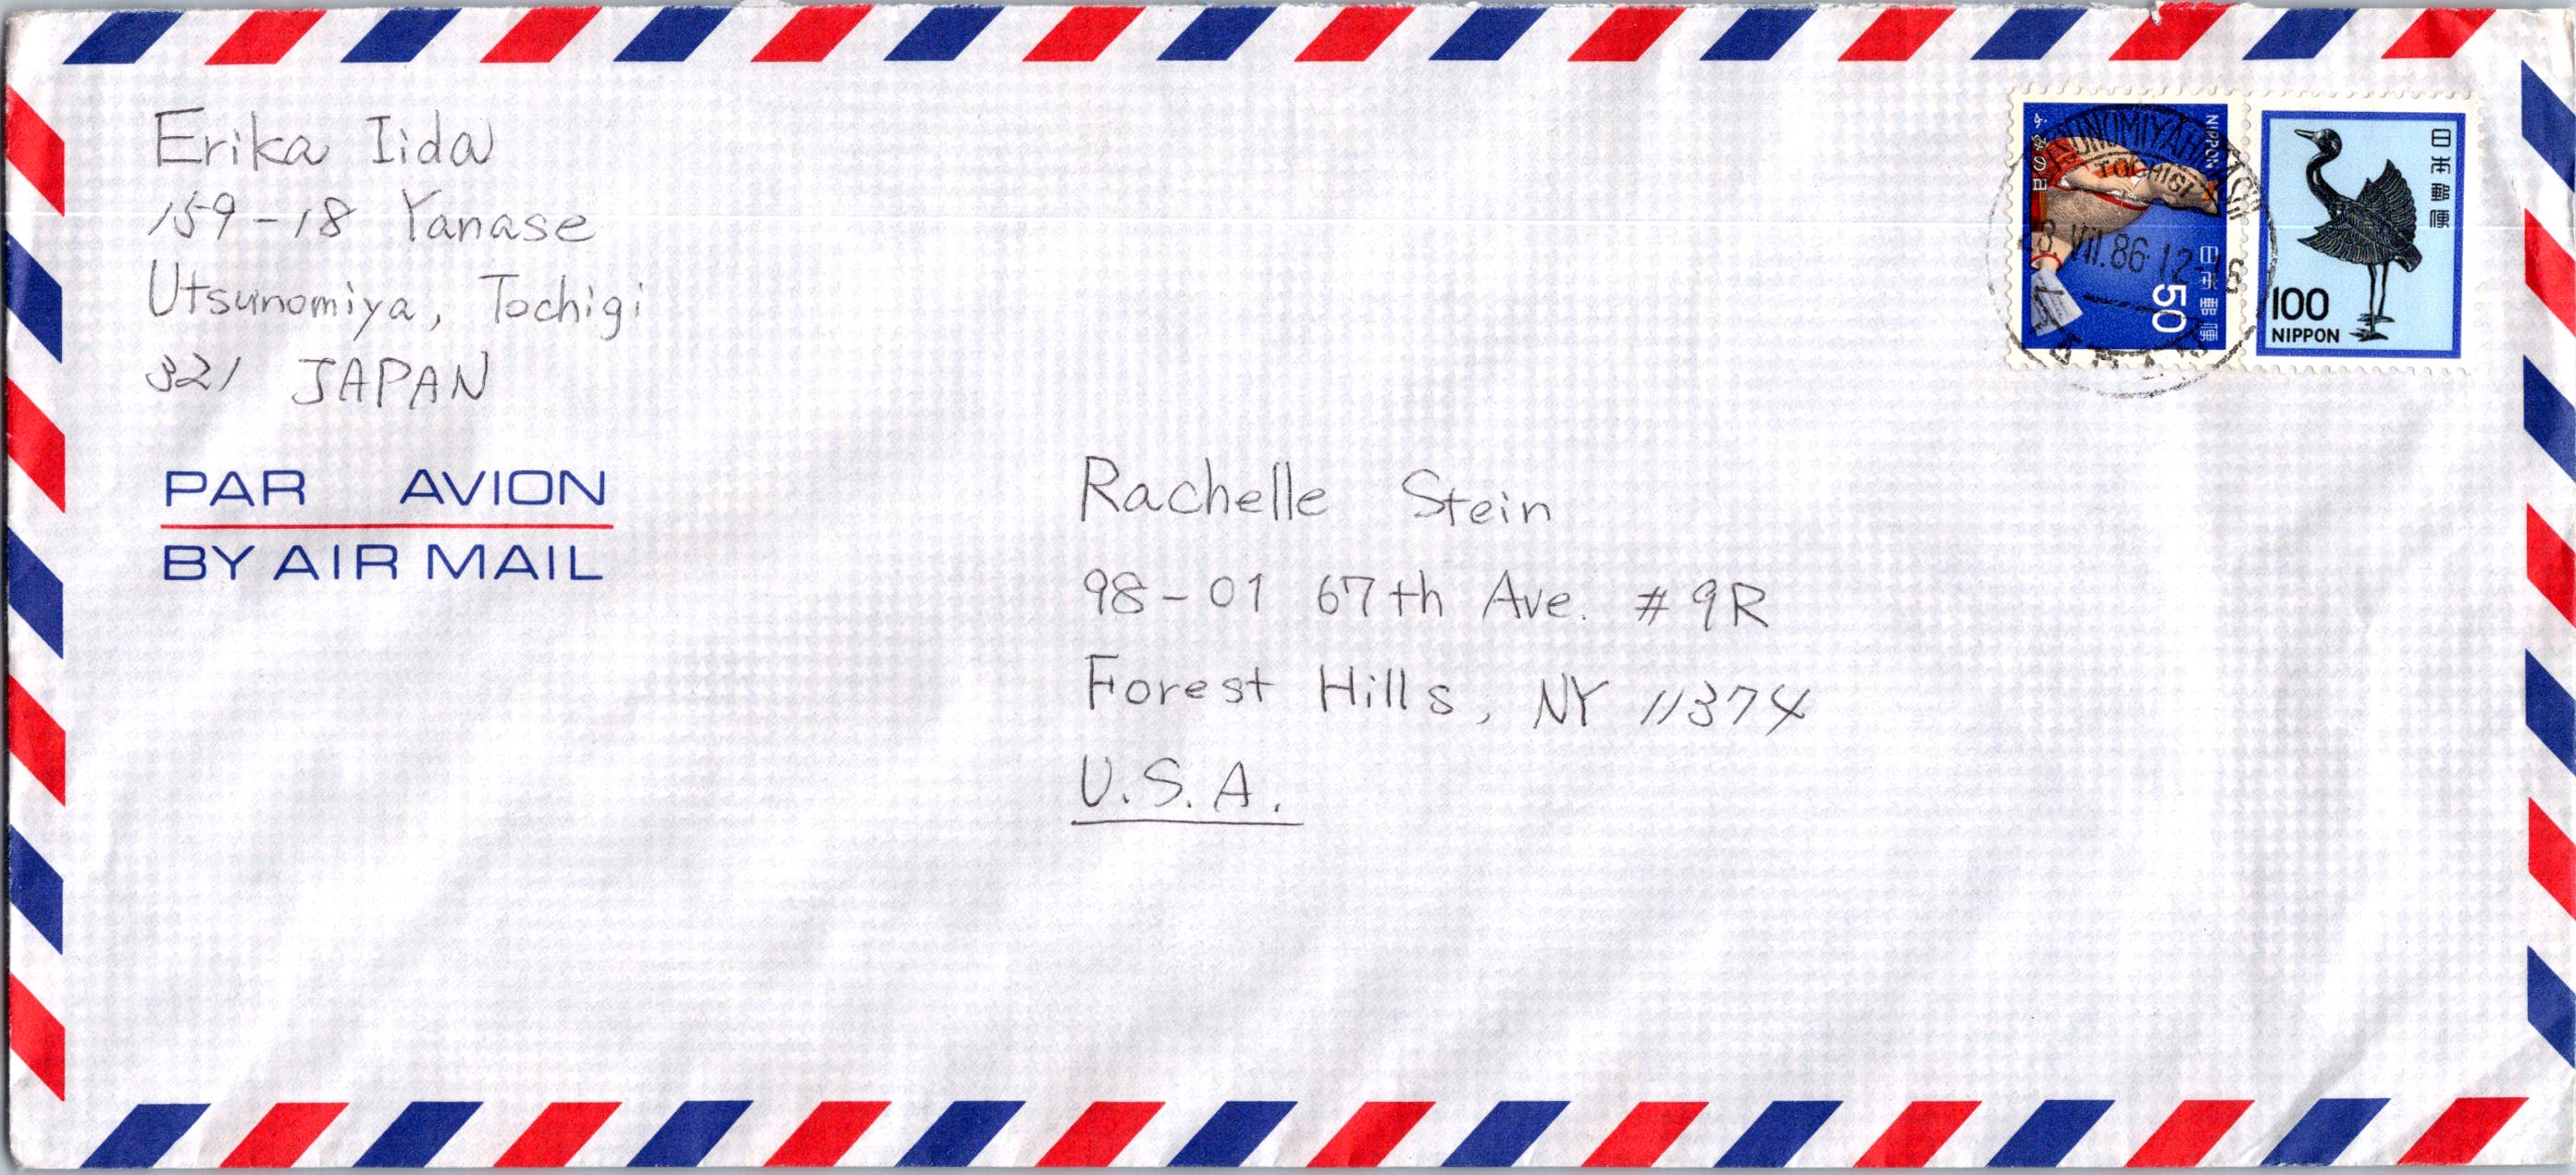 Erika Iida
159-18 Yanase
Utsunomiya, Tochigi
321 JAPAN
PAR AVION
BY AIR MAIL
Rachelle Stein
98-01 67th Ave. #9R
Forest Hills, NY 11374
U.S.A.
NIPPON
日本郵便
50
TOCHIGI
VII.86.12-
日本郵便
100
NIPPON